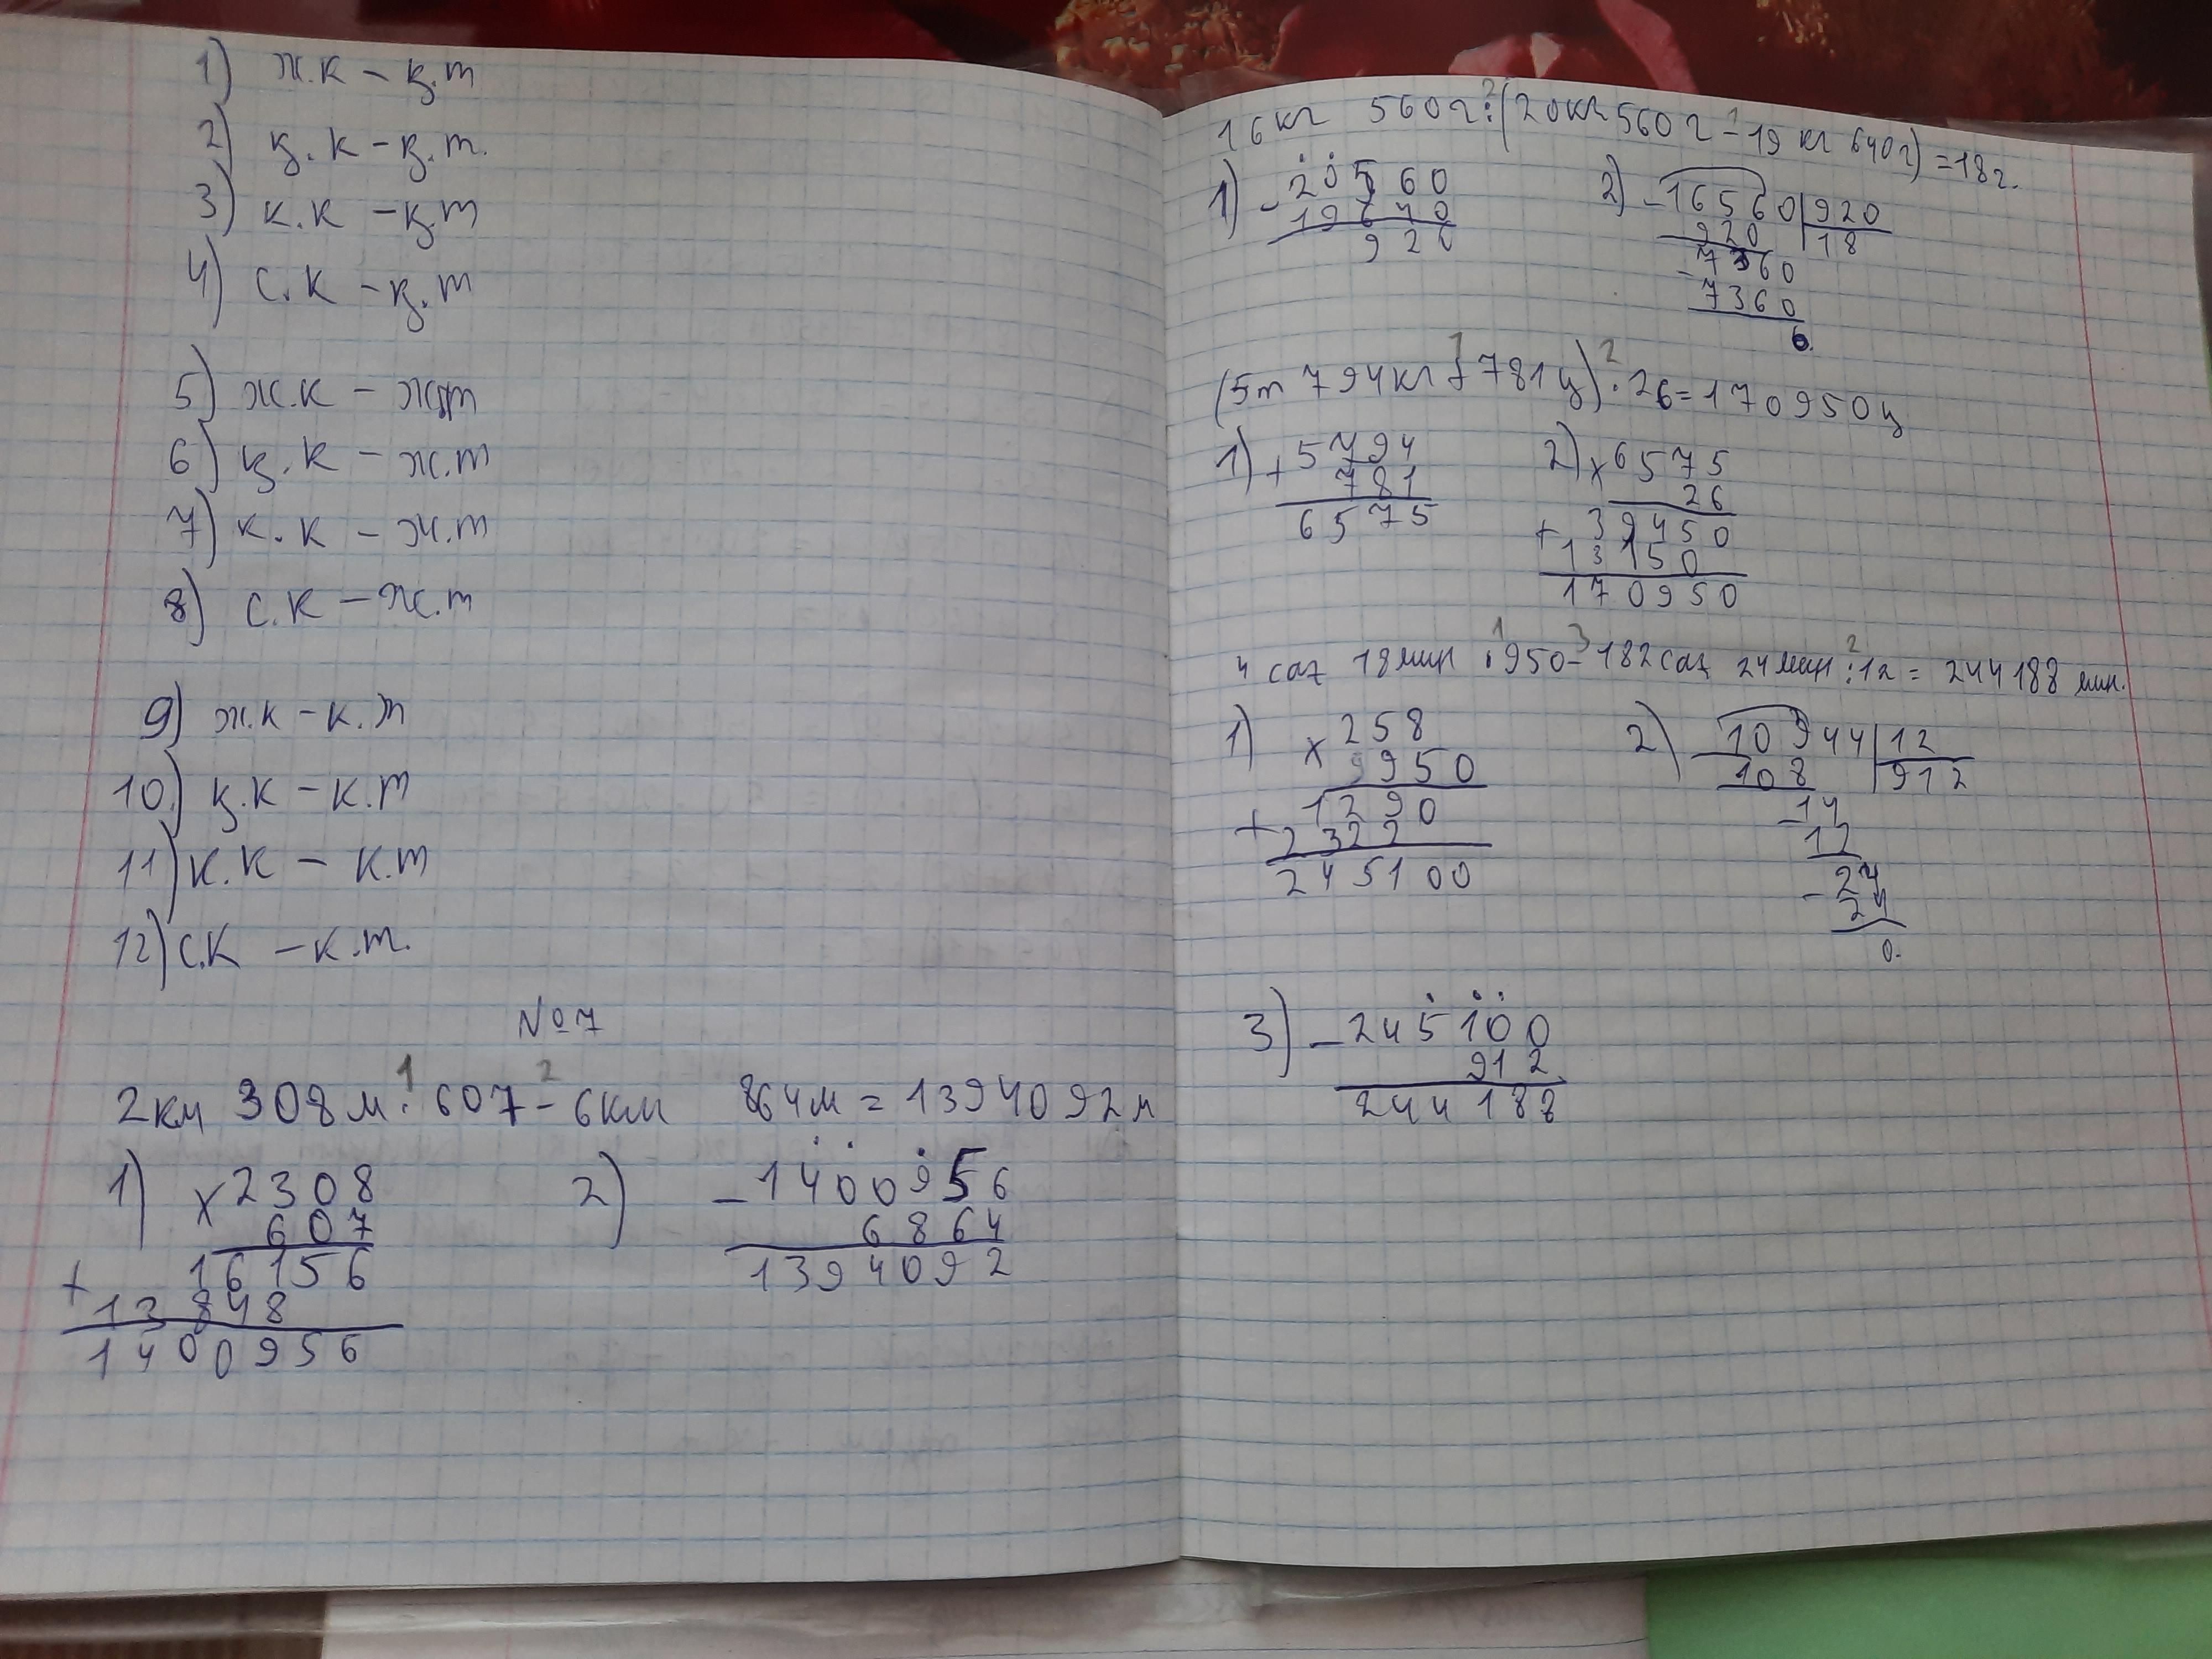 1) ж.к – қ.т
2) қ.к – қ.т.
3) к.к – қ.т
4) с.к – қ.т
5) ж.к – ж.т
6) қ.к – ж.т
7) к.к – ж.т
8) с.к – ж.т
9) ж.к – к.т
10) қ.к – к.т
11) к.к – к.т
12) с.к – к.т.
№7
2км 308м · 607 – 6км 864м = 1394092м
1) × 2308
607
+ 16156
13848
1400956
2) – 1400956
6864
1394092
16кг 560г : (20кг 560г – 19кг 640г) = 18г.
1) – 20560
19640
920
2) – 16560 | 920
920 | 18
– 7360
7360
0.
(5т 794кг + 781ц) · 26 = 170950ц
1) + 5794
781
6575
2) × 6575
26
+ 39450
13150
170950
4 сағ 18мин · 950 – 182сағ 24мин : 12 = 244188 мин.
1) × 258
950
+ 1290
2322
245100
2) – 10944 | 12
108 | 912
– 14
12
– 24
24
0.
3) – 245100
912
244188